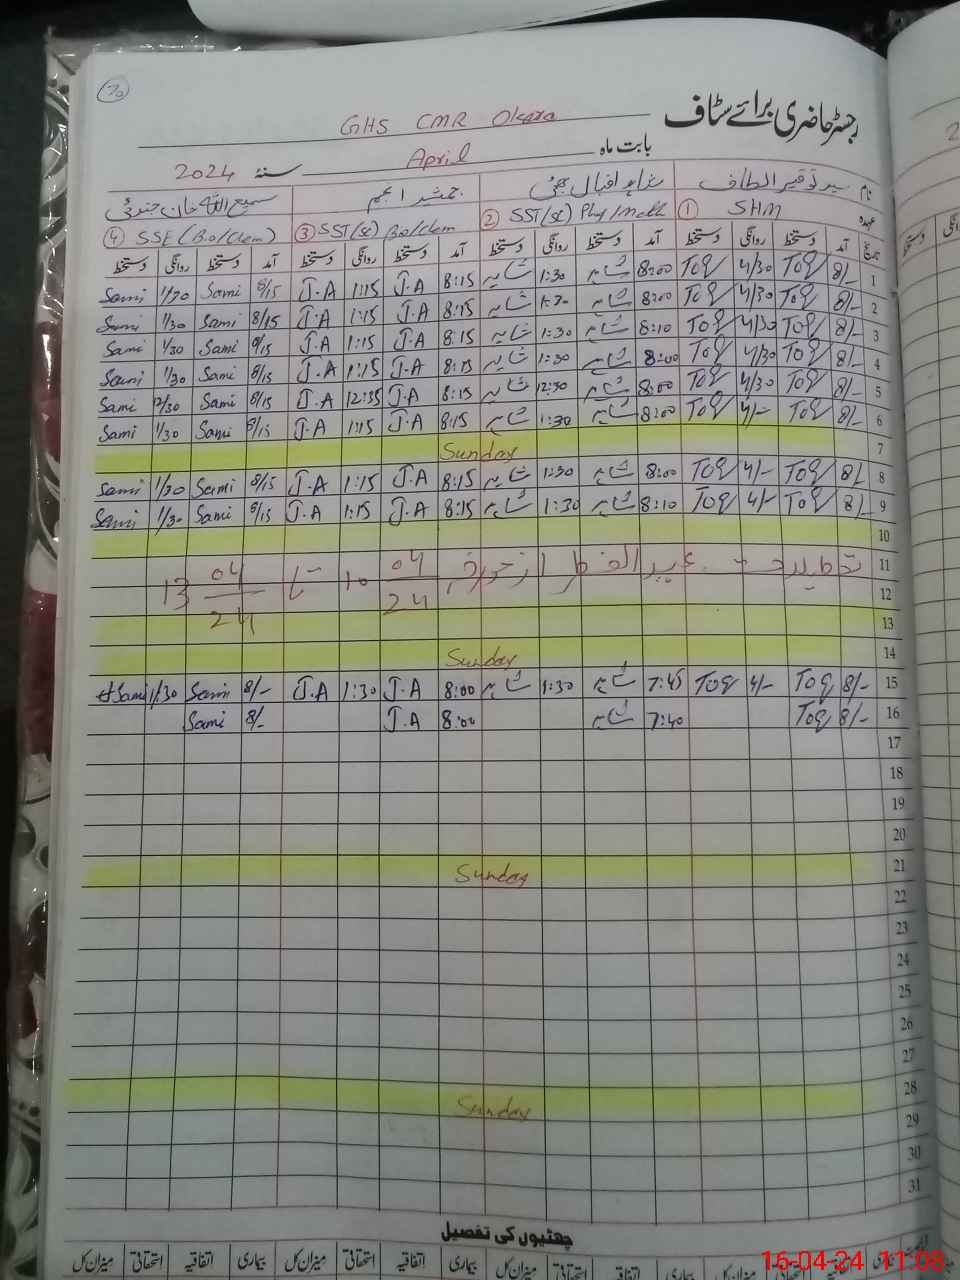 70
رجسٹر حاضری برائے سٹاف
GHS CMR Okara
بابت ماہ April سنہ 2024
نام سید توقیر الطاف شاہد اقبال بھٹی جمشید انجم سمیع اللہ خان
عہدہ ① SHM ② SST(sc) Phy/Math ③ SST(sc) Bio/Chem ④ SSE (Bio/Chem)
تاریخ آمد دستخط روانگی دستخط آمد دستخط روانگی دستخط آمد دستخط روانگی دستخط آمد دستخط روانگی دستخط
1 8/- Toq 4/30 Toq 8:00 شاہد 1:30 شاہد 8:15 J.A 1:15 J.A 8/15 Sami 1/30 Sami
2 8/- Toq 4/30 Toq 8:00 شاہد 1:30 شاہد 8:15 J.A 1:15 J.A 8/15 Sami 1/30 Sami
3 8/- Toq 4/30 Toq 8:10 شاہد 1:30 شاہد 8:15 J.A 1:15 J.A 8/15 Sami 1/30 Sami
4 8/- Toq 4/30 Toq 8:00 شاہد 1:30 شاہد 8:15 J.A 1:15 J.A 8/15 Sami 1/30 Sami
5 8/- Toq 4/30 Toq 8:00 شاہد 12:30 شاہد 8:15 J.A 12:35 J.A 8/15 Sami 12/30 Sami
6 8/- Toq 4/- Toq 8:00 شاہد 1:30 شاہد 8:15 J.A 1:15 J.A 8/15 Sami 1/30 Sami
7 Sunday
8 8/- Toq 4/- Toq 8:00 شاہد 1:30 شاہد 8:15 J.A 1:15 J.A 8/15 Sami 1/30 Sami
9 8/- Toq 4/- Toq 8:10 شاہد 1:30 شاہد 8:15 J.A 1:15 J.A 8/15 Sami 1/30 Sami
10
11 تعطیلات عید الفطر از مورخہ 10 04/24 تا 13 04/24
12
13
14 Sunday
15 8/- Toq 4/- Toq 7:45 شاہد 1:30 شاہد 8:00 J.A 1:30 J.A 8/- Sami 1/30 Sami
16 8/- Toq 7:40 شاہد 8:00 J.A 8/- Sami
17
18
19
20
21 Sunday
22
23
24
25
26
27
28 Sunday
29
30
31
چھٹیوں کی تفصیل
بیماری اتفاقیہ استحقاقی میزان کل بیماری اتفاقیہ استحقاقی میزان کل بیماری اتفاقیہ استحقاقی میزان کل
16-04-24 11:08